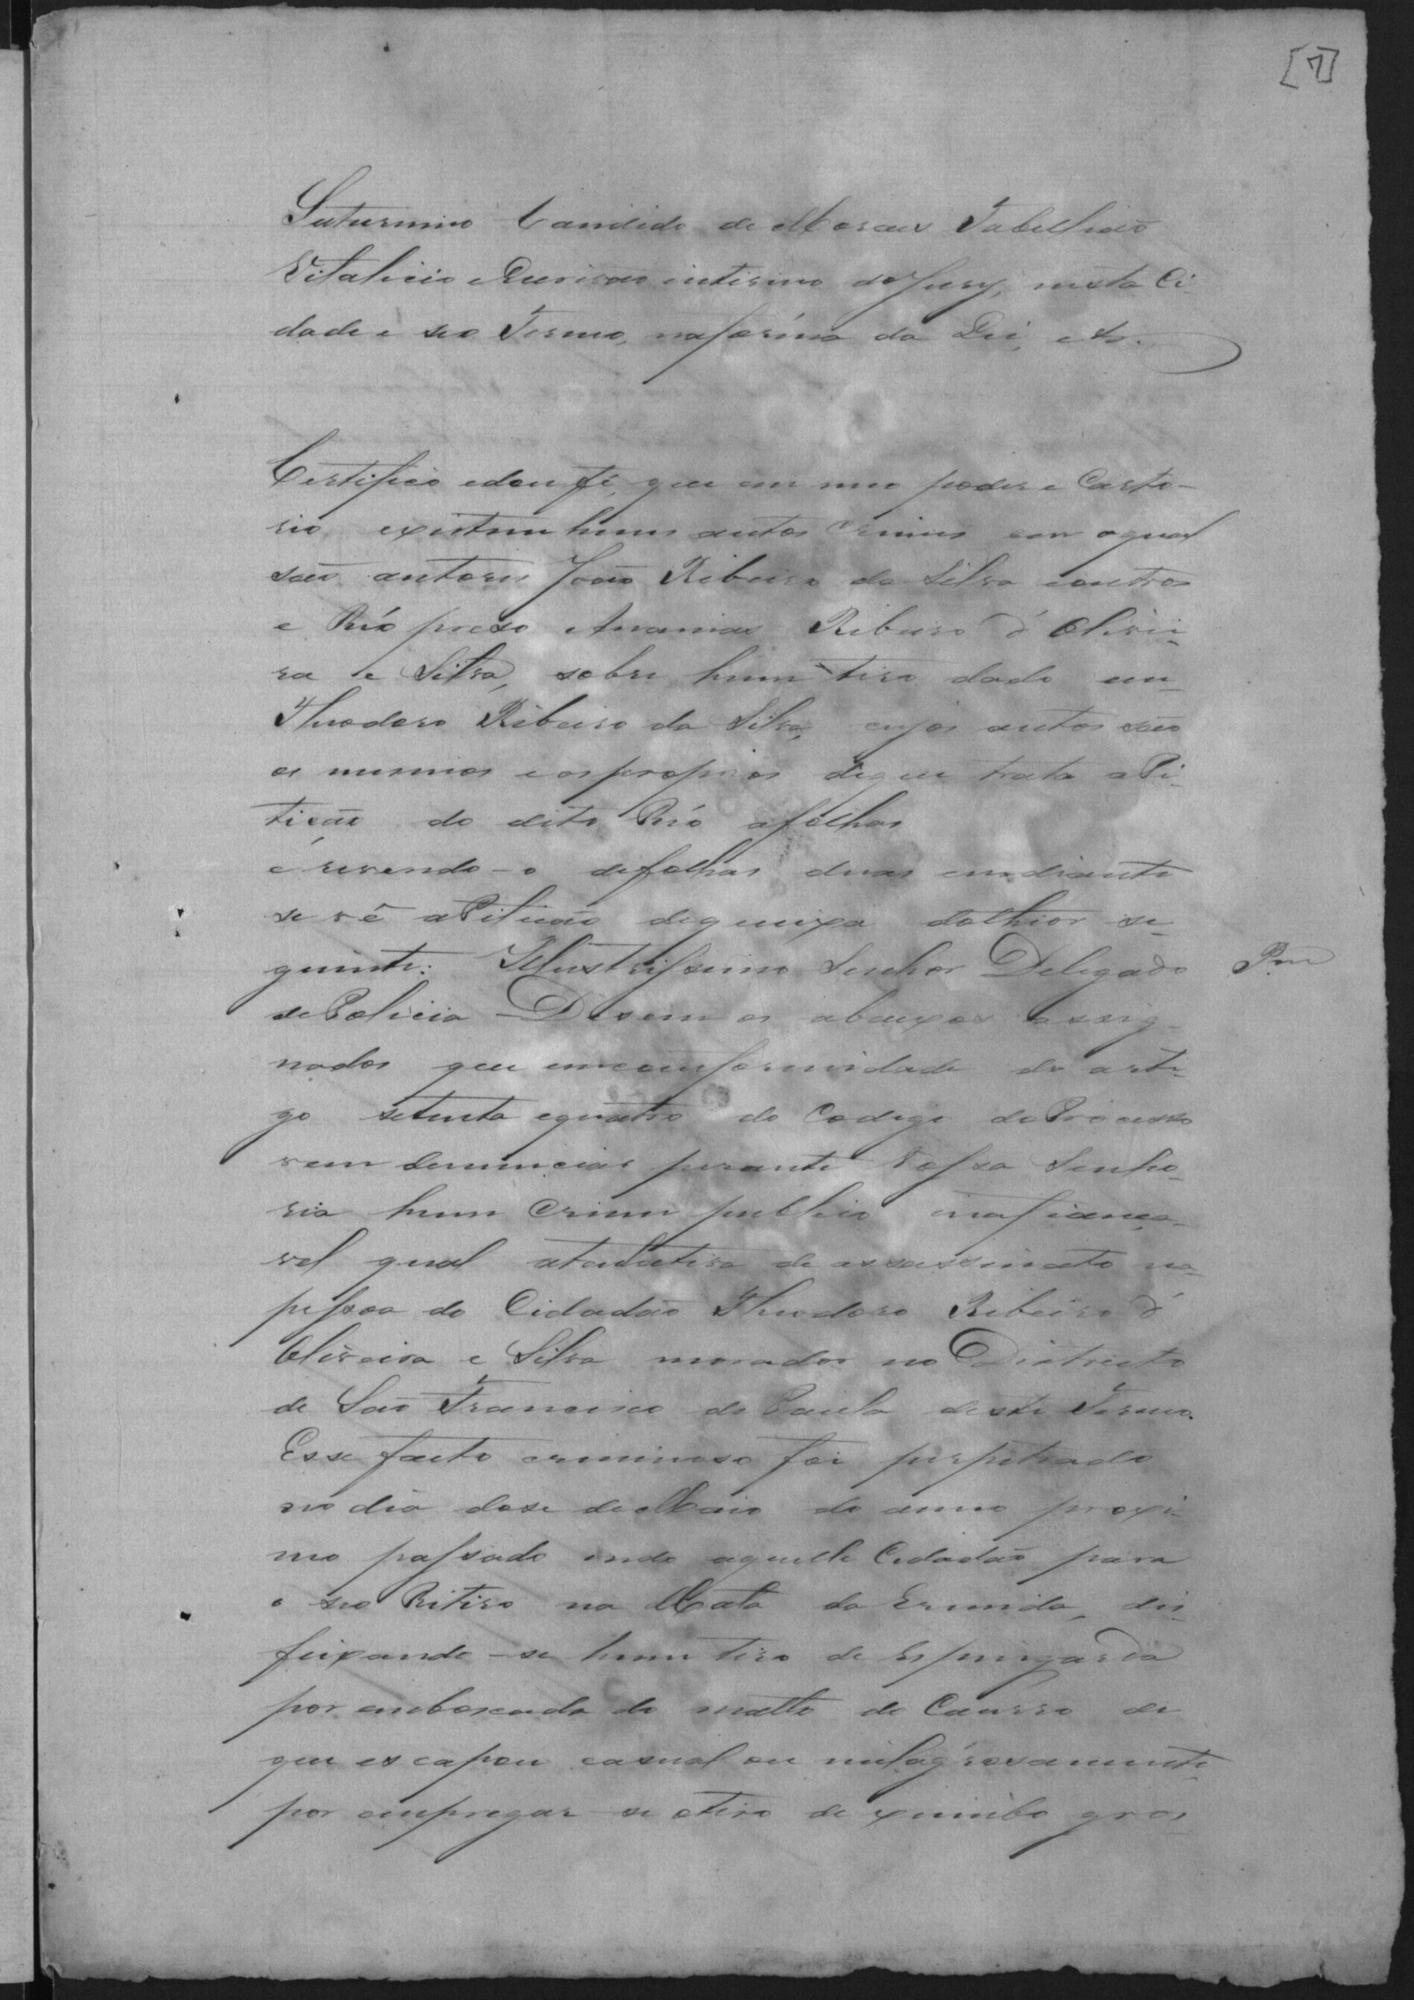 [7]
Saturnino Candido de Moraes Tabellião
Vitalicio e Escrivão interino do Jury, nesta Ci-
dade e seo Termo, na forma da Lei, etc.
Certifico e dou fé, que em meu poder e Carto-
rio existem huns autos crimes em o qual
são autores João Ribeiro da Silva e outros
e Réo preso Ananias Ribeiro d'Olivei-
ra e Silva, sobre hum tiro dado em
Theodoro Ribeiro da Silva, cujos autos são
os mesmos e os proprios de que trata a Pe-
tição do dito Réo a folhas
e revendo-o de folhas duas em diante
se vê a Petição de queixa do theor se-
guinte: Illustrissimo Senhor Delegado
de Policia Disem os abaixos assig-
nados que em conformidade do arti-
go setenta e quatro do Codigo do Processo
vem denunciar perante Vossa Senho-
ria hum crime publico inafiança-
vel qual a tentativa de assassinato na
pessoa do Cidadão Theodoro Ribeiro d'
Oliveira e Silva morador no Districto
de São Francisco de Paula deste Termo.
Esse facto criminoso foi perpetrado
no dia dose de Maio do anno proxi-
mo passado indo aquelle Cidadão para
o seo Retiro na Mata da Ermida, des-
feixando-se hum tiro de Espingarda
por emboscada do matto de
que escapou casual ou milagrosamente
por empregar-se o tiro de xumbo gros-